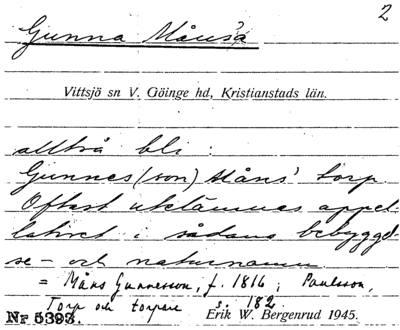 2
Gunna Måns's
Vittsjö sn V. Göinge hd, Kristianstads län.
alltså bli:
Gunnes(son) Måns' torp.
Oftast utelämnas appel-
lativet i sådana bebyggel-
se- och naturnamn
= Måns Gunnesson, f. 1816; Paulsson,
Torp och torpare s. 182.
Nr 5393. Erik W. Bergenrud 1945.